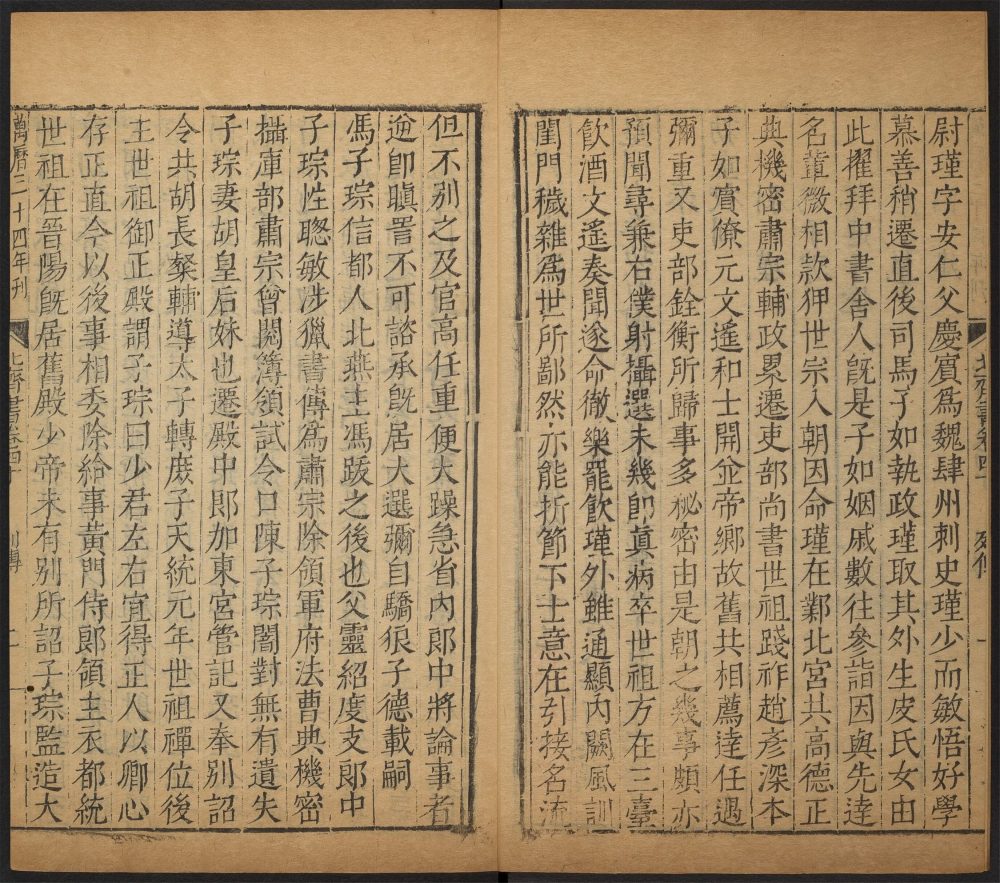 尉瑾字安仁父慶賓爲魏肆州刺史瑾少而敏悟好學
慕善稍遷直後司馬子如執政瑾取其外生皮氏女由
此擢拜中書舍人旣是子如姻戚數往參詣因與先達
名輩微相款狎世宗入朝因命瑾在鄴北宮共高德正
典機密肅宗輔政累遷吏部尚書世祖踐祚趙彥深本
子如賓僚元文遙和士開並帝鄉故舊共相薦達任遇
彌重又吏部銓衡所歸事多秘密由是朝之幾事頗亦
預聞尋兼右僕射攝選未幾卽眞病卒世祖方在三臺
飲酒文遙奏聞遂命徹樂罷飲瑾外雖通顯內闕風訓
閨門穢雜爲世所鄙然亦能折節下士意在引接名流
北齊書卷四十 列傳 一
但不别之及官高任重便大躁急省內郎中將論事者
逆卽瞋詈不可諮承旣居大選彌自驕狠子德載嗣
馮子琮信都人北燕主馮跋之後也父靈紹度支郎中
子琮性聰敏涉獵書傳爲肅宗除領軍府法曹典機密
攝庫部肅宗曾閱簿領試令口陳子琮闇對無有遺失
子琮妻胡皇后妹也遷殿中郎加東宮管記又奉别詔
令共胡長粲輔導太子轉庶子天統元年世祖禪位後
主世祖御正殿謂子琮曰少君左右宜得正人以卿心
存正直今以後事相委除給事黃門侍郎領主衣都統
世祖在晉陽旣居舊殿少帝未有别所詔子琮監造大
萬曆三十四年刊 北齊書卷四十 列傳 二